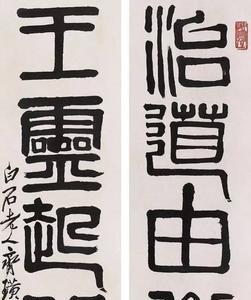 治道由
王靈起
白石老人齊璜